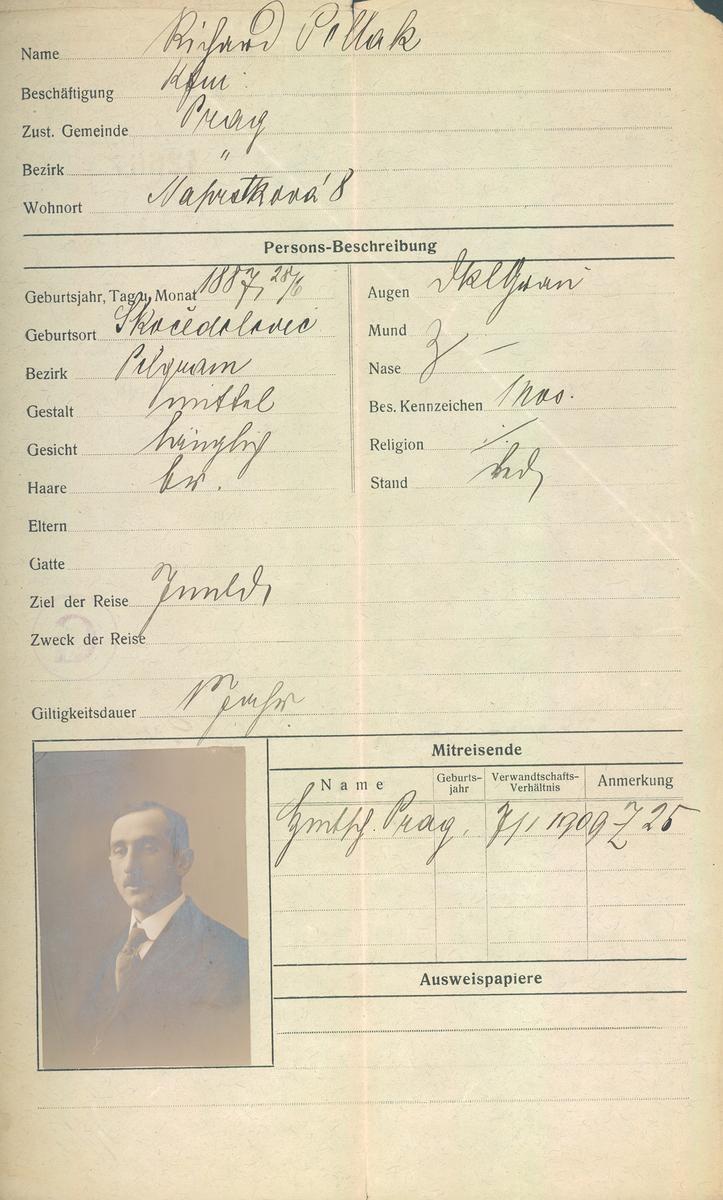 Name Richard Pollak
Beschäftigung Kfm.
Zust. Gemeinde Prag
Bezirk "
Wohnort Naprstková 8
Persons-Beschreibung
Geburtsjahr, Tag u. Monat 1887, 28/6
Geburtsort Skočedolovic
Bezirk Pilgram
Gestalt mittel
Gesicht länglich
Haare br.
Augen dklgrau
Mund
Nase
Bes. Kennzeichen
Religion
Stand led
Eltern
Gatte
Ziel der Reise
Zweck der Reise
Giltigkeitsdauer 1 Jahr
Mitreisende
Name Geburts-jahr Verwandtschafts-Verhältnis Anmerkung
Prag, 1909 Z 25
Ausweispapiere